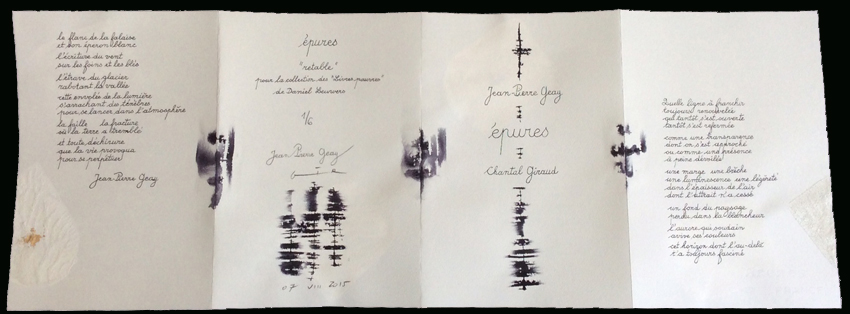 le flanc de la falaise
et son éperon blanc
l'écriture du vent
sur les foins et les blés
l'étrave du glacier
rabotant la vallée
cette envolée de la lumière
s'arrachant des ténèbres
pour se lancer dans l'atmosphère
la faille la fracture
où la terre a tremblé
et toute déchirure
que la vie provoqua
pour se perpétuer
Jean-Pierre Geay
épures
"retable"
pour la collection des "Livres pauvres"
de Daniel Leuwers
1/6
Jean-Pierre Geay
07 VIII 2015
Jean-Pierre Geay
épures
Chantal Giraud
Quelle ligne à franchir
toujours renouvelée
qui tantôt s'est ouverte
tantôt s'est refermée
comme une transparence
dont on s'est approché
ou comme une présence
à peine dévoilée
une marge une brèche
une luminescence une légèreté
dans l'épaisseur de l'air
dont l'attrait n'a cessé
un fond du paysage
perdu dans la blancheur
l'aurore qui soudain
avive ses couleurs
cet horizon dont l'au-delà
t'a toujours fasciné